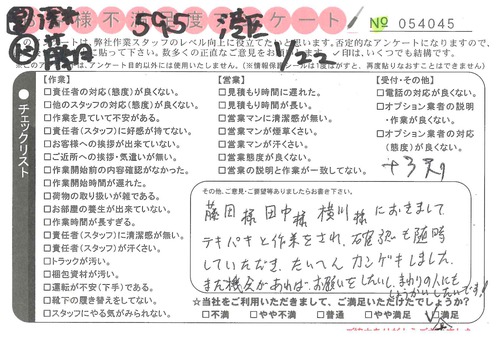 様不満足度アンケート！
№ 054045
595
1/22
このアンケートは、弊社作業スタッフのレベル向上に役立てたいと思います。否定的なアンケートになりますので、
に貼って下さい。数多くの正直なご意見をお願い
チェックリスト
【作業】
□責任者の対応(態度)が良くない。
□他のスタッフの対応(態度)が良くない。
□作業を見ていて不安がある。
□責任者(スタッフ)に好感が持てない。
□お客様への挨拶が出来ていない。
□ご近所への挨拶・気遣いが無い。
□作業開始前の内容確認がなかった。
□作業開始時間が遅れた。
□荷物の取り扱いが雑である。
□お部屋の養生が出来ていない。
□作業時間が長すぎる。
□責任者(スタッフ)に清潔感が無い。
□責任者(スタッフ)が汗くさい。
□トラックが汚い。
□梱包資材が汚い。
□運転が不安(下手)である。
□靴下の履き替えをしてない。
□スタッフにやる気がみられない。
【営業】
□見積もり時間に遅れた。
□見積もり時間が長い。
□営業マンに清潔感が無い。
□営業マンが煙草くさい。
□営業マンが汗くさい。
□営業態度が良くない。
□営業の説明と作業が一致してない。
【受付・その他】
□電話の対応が良くない。
□オプション業者の説明
・作業が良くない。
□オプション業者の対応
(態度)が良くない。
その他、ご意見・ご要望等ありましたらお書き下さい。
藤田様 田中様 横川様 におきまして
テキパキと作業をされ、確認も随時
していただき、たいへん カンゲキしました。
また機会があれば、お願いをしたいし、まわりの人にも
しょうかいしたいです！
☆当社をご利用いただきまして、ご満足いただけたでしょうか？
□不満 □やや不満 □普通 □やや満足 □満足